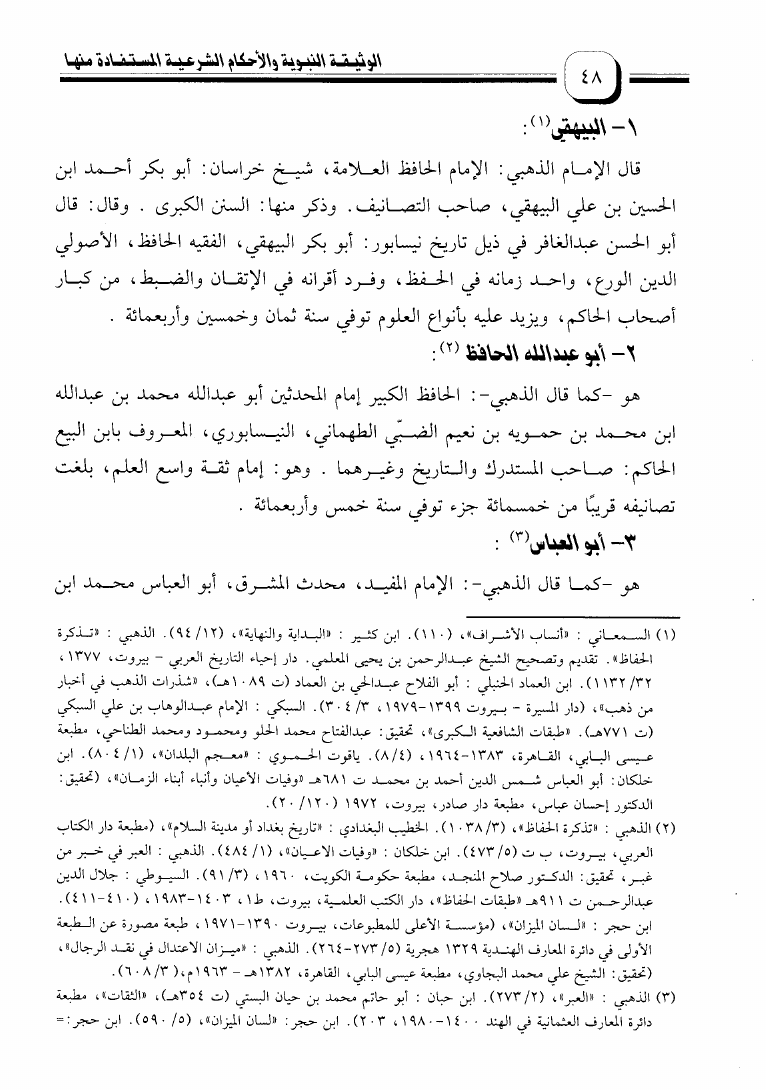 الوثيقة النبوية والأحكام الشرعية المستفادة منها
٤٨
١- البيهقي(١):
قال الإمام الذهبي: الإمام الحافظ العلامة، شيخ خراسان: أبو بكر أحمد ابن
الحسين بن علي البيهقي، صاحب التصانيف. وذكر منها: السنن الكبرى . وقال: قال
أبو الحسن عبدالغافر في ذيل تاريخ نيسابور: أبو بكر البيهقي، الفقيه الحافظ، الأصولي
الدين الورع، واحد زمانه في الحفظ، وفرد أقرانه في الإتقان والضبط، من كبار
أصحاب الحاكم، ويزيد عليه بأنواع العلوم توفي سنة ثمان وخمسين وأربعمائة .
٢- أبو عبدالله الحافظ (٢):
هو -كما قال الذهبي-: الحافظ الكبير إمام المحدثين أبو عبدالله محمد بن عبدالله
ابن محمد بن حمويه بن نعيم الضبّي الطهماني، النيسابوري، المعروف بابن البيع
الحاكم: صاحب المستدرك والتاريخ وغيرهما . وهو: إمام ثقة واسع العلم، بلغت
تصانيفه قريبًا من خمسمائة جزء توفي سنة خمس وأربعمائة .
٣- أبو العباس(٣) :
هو -كما قال الذهبي-: الإمام المفيد، محدث المشرق، أبو العباس محمد ابن
(١) السمعاني : «أنساب الأشراف»، (١١٠). ابن كثير : «البداية والنهاية»، (٩٤/١٢). الذهبي : «تذكرة
الحفاظ». تقديم وتصحيح الشيخ عبدالرحمن بن يحيى المعلمي. دار إحياء التاريخ العربي - بيروت، ١٣٧٧،
١١٣٢/٣٢). ابن العماد الحنبلي : أبو الفلاح عبدالحي بن العماد (ت ١٠٨٩هـ)، «شذرات الذهب في أخبار
من ذهب»، (دار المسيرة - بيروت ١٣٩٩-١٩٧٩، ٣٠٤/٣). السبكي : الإمام عبدالوهاب بن علي السبكي
(ت ٧٧١هـ). «طبقات الشافعية الكبرى»، تحقيق: عبدالفتاح محمد الحلو ومحمود ومحمد الطناحي، مطبعة
عيسى البابي، القاهرة، ١٣٨٣-١٩٦٤، (٨/٤). ياقوت الحموي : «معجم البلدان»، (٨٠٤/١). ابن
خلكان: أبو العباس شمس الدين أحمد بن محمد ت ٦٨١هـ «وفيات الأعيان وأنباء أبناء الزمان»، (تحقيق:
الدكتور إحسان عباس، مطبعة دار صادر، بيروت، ١٩٧٢ (٢٠/١٢٠).
(٢) الذهبي : «تذكرة الحفاظ»، (١٠٣٨/٣). الخطيب البغدادي : «تاريخ بغداد أو مدينة السلام»، (مطبعة دار الكتاب
العربي، بيروت، ب ت (٤٧٣/٥). ابن خلكان : «وفيات الاعيان»، (٤٨٤/١). الذهبي : العبر في خبر من
غبر، تحقيق: الدكتور صلاح المنجد، مطبعة حكومة الكويت، ١٩٦٠، (٩١/٣). السيوطي : جلال الدين
عبدالرحمن ت ٩١١هـ «طبقات الحفاظ»، دار الكتب العلمية، بيروت، ط١، ١٤٠٣-١٩٨٣، (٤١٠-٤١١).
ابن حجر : «لسان الميزان»، (مؤسسة الأعلى للمطبوعات، بيروت ١٣٩٠-١٩٧١، طبعة مصورة عن الطبعة
الأولى في دائرة المعارف الهندية ١٣٢٩ هجرية (٢٧٣/٥-٢٦٤). الذهبي : «ميزان الاعتدال في نقد الرجال»،
(تحقيق: الشيخ علي محمد البجاوي، مطبعة عيسى البابي، القاهرة، ١٣٨٢هـ - ١٩٦٣م،(٦٠٨/٣).
(٣) الذهبي : «العبر»، (٢٧٣/٢). ابن حبان : أبو حاتم محمد بن حيان البستي (ت ٣٥٤هـ)، «الثقات»، مطبعة
دائرة المعارف العثمانية في الهند ١٤٠٠-١٩٨٠، ٢٠٣). ابن حجر: «لسان الميزان»، (٥٩٠/٥). ابن حجر:=